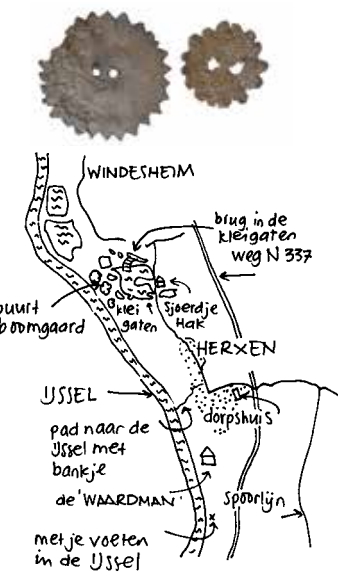 WINDESHEIM
brug in de
kleigaten
weg N 337
buurt
boomgaard
klei
gaten
Sjoerdje
Hak
HERXEN
IJSSEL
dorpshuis
pad naar de
IJssel met
bankje
de 'WAARDMAN'
spoorlijn
met je voeten
in de IJssel